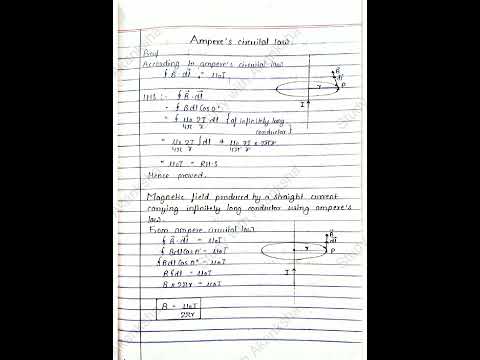 Ampere's circuital law.
Proof
According to ampere's circuital law
∮ B⃗·dl⃗ = μ₀I
LHS :- ∮ B⃗·dl⃗
= ∮ Bdl cos 0°
= ∮ μ₀/4π 2I/r {of infinitely long conductor}
= μ₀/4π 2I/r ∮dl ⇒ μ₀/4π 2I/r × 2πr
= μ₀I = RH.S
Hence proved.
B⃗
dl⃗
r
P
I
Magnetic field produced by a straight current
carrying infinitely long conductor using ampere's
law.
From ampere circuital law
∮ B⃗·dl⃗ = μ₀I
∮ Bdl cos 0° = μ₀I
∮ Bdl cos 0° = μ₀I
B∮dl = μ₀I
B × 2πr = μ₀I
B = μ₀I/2πr
B⃗
dl⃗
r
P
I
Study with Akanksha